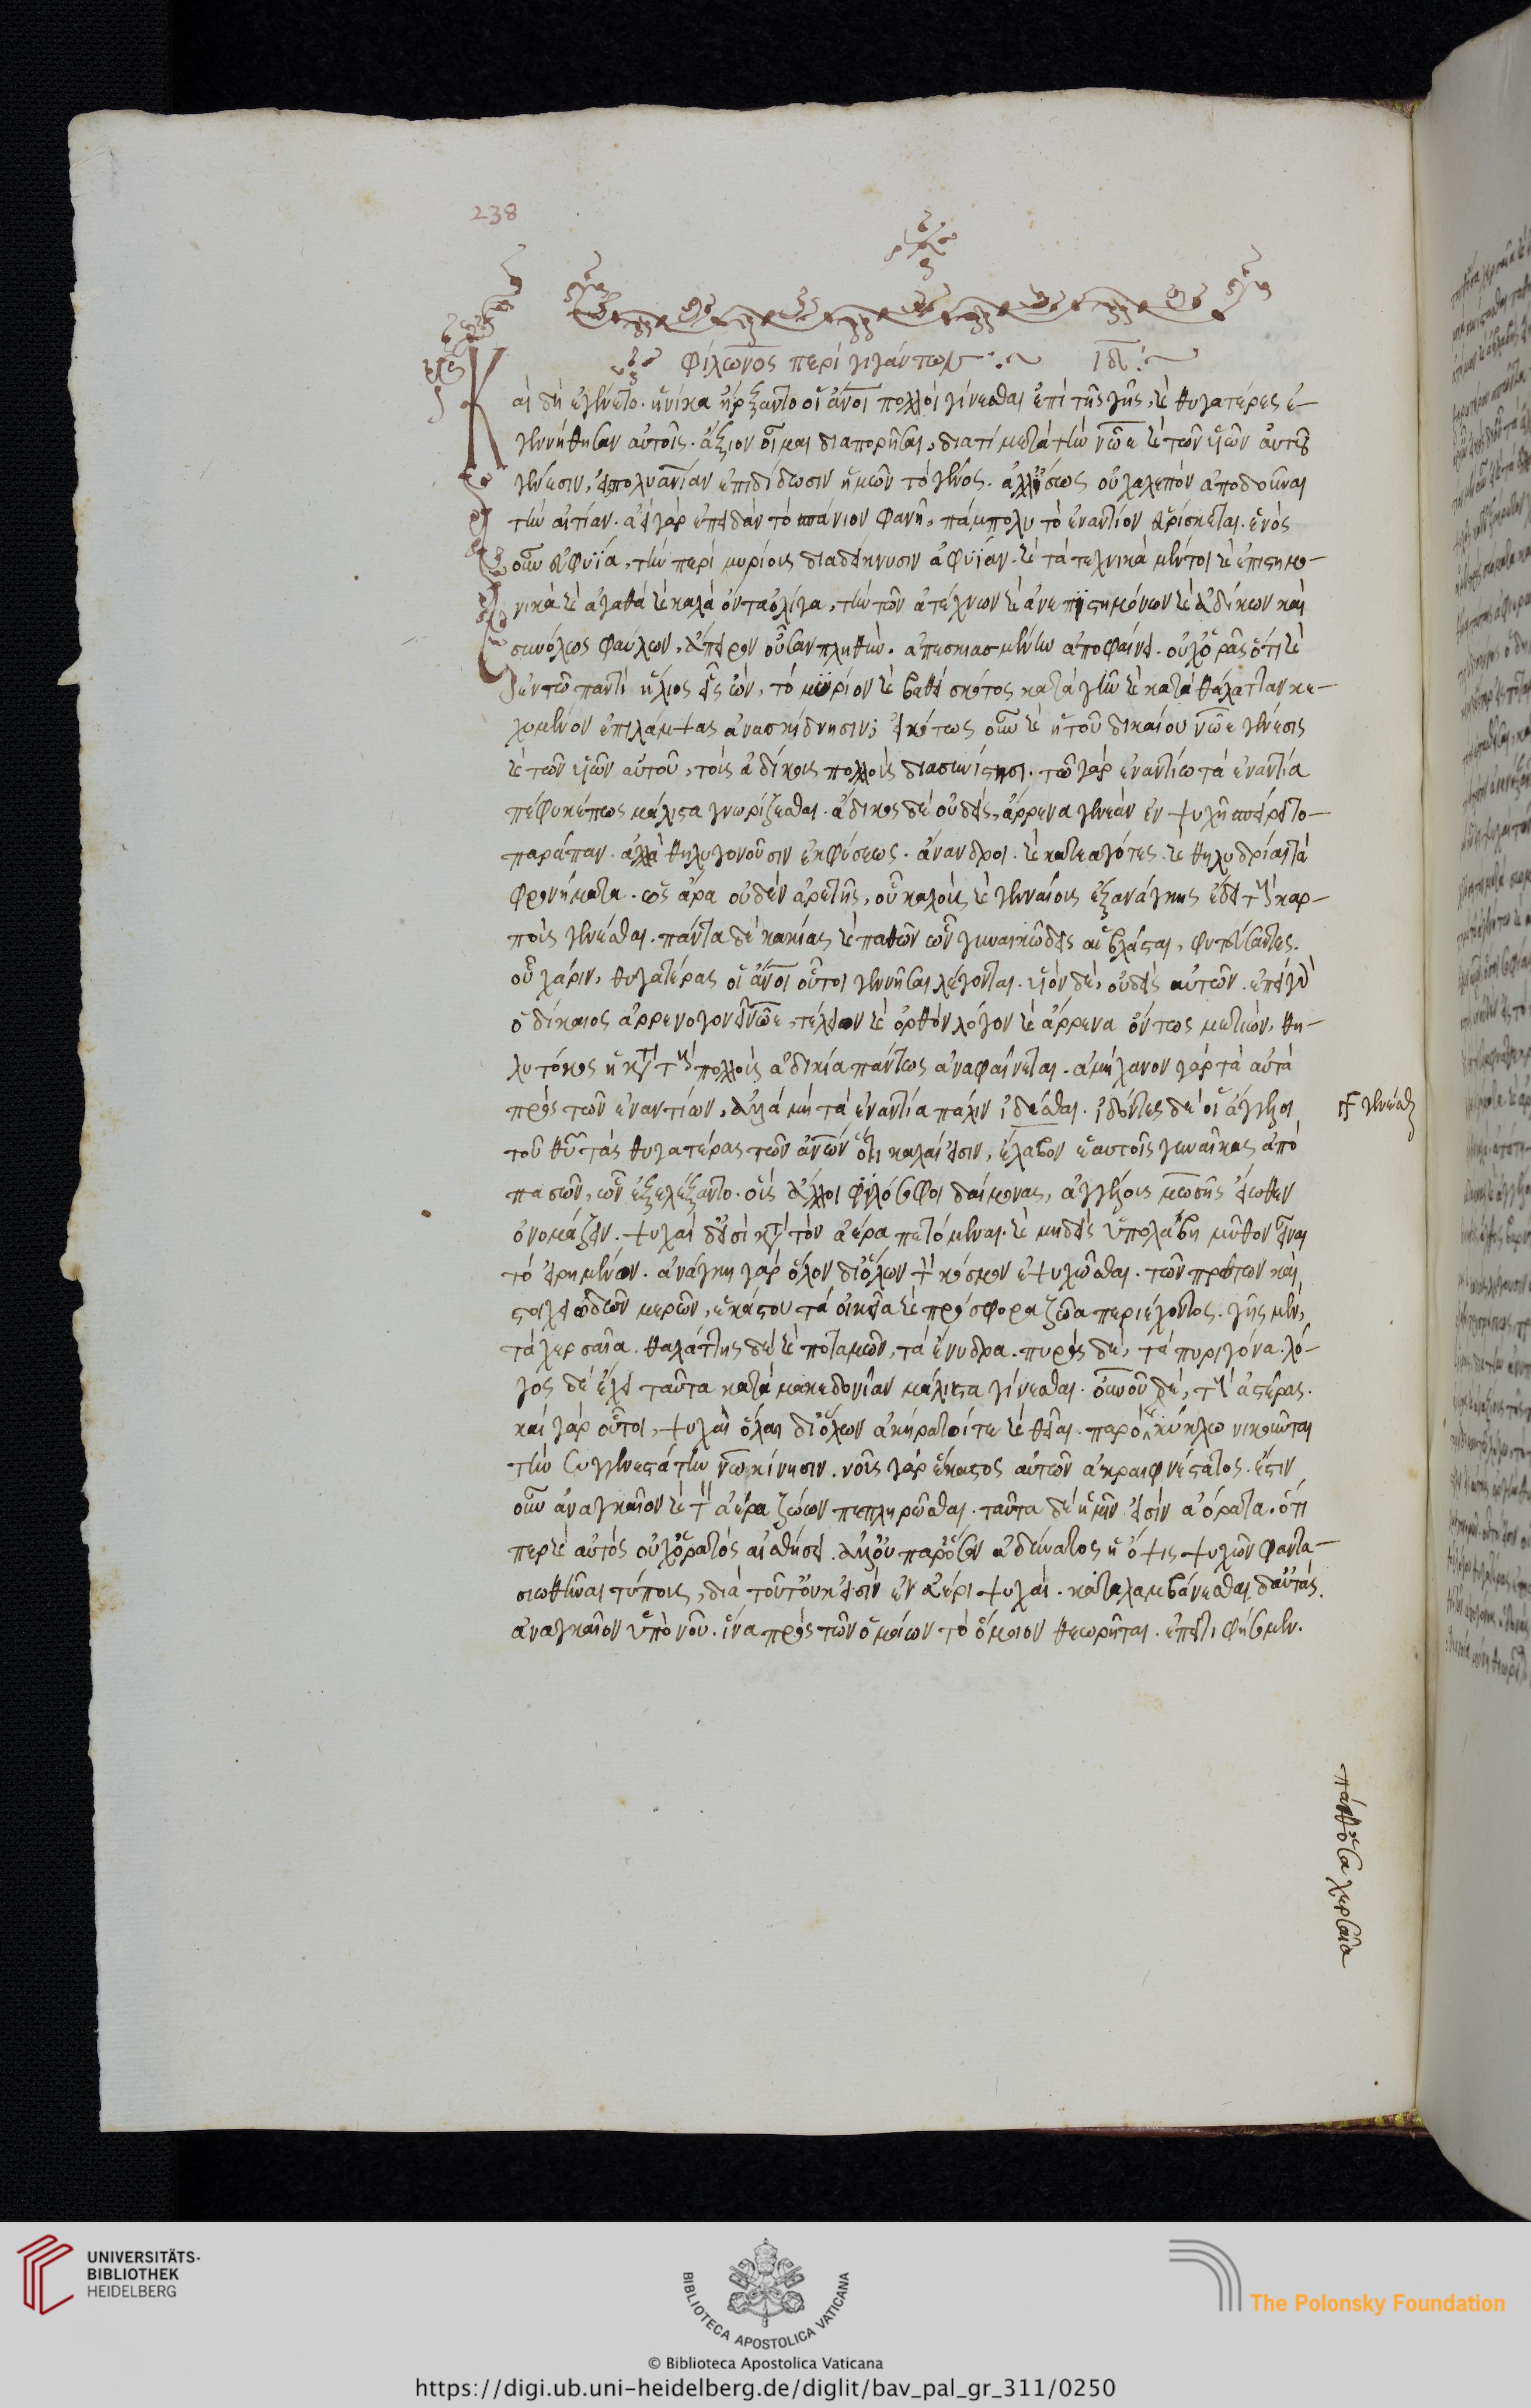 238
φίλωνος περὶ γιγάντων ιδ
Καὶ δὴ ἐγένετο. ἡνίκα ἤρξαντο οἱ ἄνοι πολλοὶ γίνεσθαι ἐπὶ τῆς γῆς, καὶ θυγατέρες ἐ-
γεννήθησαν αὐτοῖς. ἄξιον οἶμαι διαπορῆσαι, διατί μετὰ τὴν νῶε καὶ τῶν υἱῶν αὐτοῦ
γένεσιν, εἰς πολυανίαν ἐπιδίδωσιν ἡμῶν τὸ γένος. ἀλλ' ἴσως οὐ χαλεπὸν ἀποδοῦναι
τὴν αἰτίαν. ἀεὶ γὰρ ἐπειδὰν τὸ σπάνιον φανῇ, πάμπολυ τὸ ἐναντίον εὑρίσκεται. ἑνὸς
οὖν εὐφυΐα, τὴν περὶ μυρίους διαδείκνυσιν ἀφυΐαν. καὶ τὰ τεχνικὰ μέντοι καὶ ἐπιστημο-
νικὰ καὶ ἀγαθὰ καὶ καλὰ ὄντα ὀλίγα, τὴν τῶν ἀτέχνων καὶ ἀνεπιστημόνων καὶ ἀδίκων καὶ
συνόλως φαύλων, ἄπειρον οὖσαν πληθὺν. ἀπεσκιασμένην ἀποφαίνει. οὐχ ὁρᾷς ὅτι καὶ
ἐν τῷ παντὶ ἥλιος εἷς ὢν, τὸ μυρίον καὶ βαθὺ σκότος κατὰ γῆν καὶ κατὰ θάλατταν κε-
χυμένον ἐπιλάμψας ἀνασκίδνησιν; εἰκότως οὖν καὶ ἡ τοῦ δικαίου νῶε γένεσις
καὶ τῶν υἱῶν αὐτοῦ, τοὺς ἀδίκους πολλοὺς διασυνίστησι. τῷ γὰρ ἐναντίω τὰ ἐναντία
πέφυκέ πως μάλιστα γνωρίζεσθαι. ἄδικος δὲ οὐδεὶς, ἄρρενα γενεὰν ἐν ψυχῇ σπείρει το-
παράπαν. ἀλλὰ θηλυγονοῦσιν ἐκφύσεως. ἄνανδροι. καὶ κατεαγότες. καὶ θηλυδρίαι τὰ
φρονήματα. ὡς ἄρα οὐδὲν ἀρετῆς, οὗ καλοῖς καὶ γενναίοις ἐξανάγκης ἔδει τοὺς καρ-
ποὺς γενέσθαι. πάντα δὲ κακίας καὶ παθῶν ὧν γυναικώδεις αἱ βλάσται, φυτεύσαντες.
οὗ χάριν, θυγατέρας οἱ ἄνοι οὗτοι γεννῆσαι λέγονται. υἱὸν δὲ, οὐδεὶς αὐτῶν. ἐπεὶ γὰρ
ὁ δίκαιος ἀρρενογονεῖ νῶε, τέλειον καὶ ὀρθὸν λόγον καὶ ἄρρενα ὄντως μετιὼν, θη-
λυτόκος ἡ κατὰ τοὺς πολλοὺς ἀδικία πάντως ἀναφαίνεται. ἀμήχανον γὰρ τὰ αὐτὰ
πρὸς τῶν ἐναντίων, ἀλλὰ μὴ τὰ ἐναντία πάλιν ἰδέσθαι. ἰδόντες δὲ οἱ ἄγγελοι
γρ γενέσθαι
τοῦ θῦ τὰς θυγατέρας τῶν ἀνῶν ὅτι καλαί εἰσιν, ἔλαβον ἑαυτοῖς γυναῖκας ἀπὸ
πασῶν, ὧν ἐξελέξαντο. οὓς ἄλλοι φιλόσοφοι δαίμονας, ἀγγέλους μωσῆς εἴωθεν
ὀνομάζειν. ψυχαὶ δ' εἰσὶ κατὰ τὸν ἀέρα πετόμεναι. καὶ μηδεὶς ὑπολάβη μῦθον εἶναι
τὸ εἰρημένον. ἀνάγκη γὰρ ὅλον διόλων τὸν κόσμον ἐψυχῶσθαι. τῶν πρώτων καὶ
στοιχειωδῶν μερῶν, ἑκάστου τὰ οἰκεῖα καὶ πρόσφορα ζῶα περιέχοντος. γῆς μὲν,
τὰ χερσαῖα. θαλάττης δὲ καὶ ποταμῶν, τὰ ἔνυδρα. πυρὸς δὲ, τὰ πυριγόνα. λό-
γος δὲ ἔχει ταῦτα κατὰ μακεδονίαν μάλιστα γίνεσθαι. οὐνοῦ δὲ, τοὺς ἀστέρας.
καὶ γὰρ οὗτοι, ψυχαὶ ὅλαι διόλων ἀκήρατοί τε καὶ θεῖαι. παρὸ καὶ κύκλω κινοῦνται
τὴν συγγενεστάτην νῷ κίνησιν. νοῦς γὰρ ἕκαστος αὐτῶν ἀκραιφνέστατος. ἔστιν
οὖν ἀναγκαῖον καὶ τὸν ἀέρα ζώων πεπληρῶσθαι. ταῦτα δὲ ἡμῖν ἐσὶν ἀόρατα. ὅτι
περ καὶ αὐτὸς οὐχ ὁρατὸς αἰσθήσει. ἀλλ' οὐ παρόσον ἀδύνατος ἡ ὄψις ψυχῶν φαντα-
σιωθῆναι τύπους, διὰ τοῦτ' οὐκ εἰσὶν ἐν ἀέρι ψυχαὶ. καταλαμβάνεσθαι δ' αὐτὰς
ἀναγκαῖον ὑπὸ νοῦ. ἵνα πρὸς τῶν ὁμοίων τὸ ὅμοιον θεωρῆται. ἐπεί τι φήσομεν.
πάνθ' ὅσα χερσαῖα
UNIVERSITÄTS-
BIBLIOTHEK
HEIDELBERG
BIBLIOTECA APOSTOLICA VATICANA
The Polonsky Foundation
© Biblioteca Apostolica Vaticana
https://digi.ub.uni-heidelberg.de/diglit/bav_pal_gr_311/0250